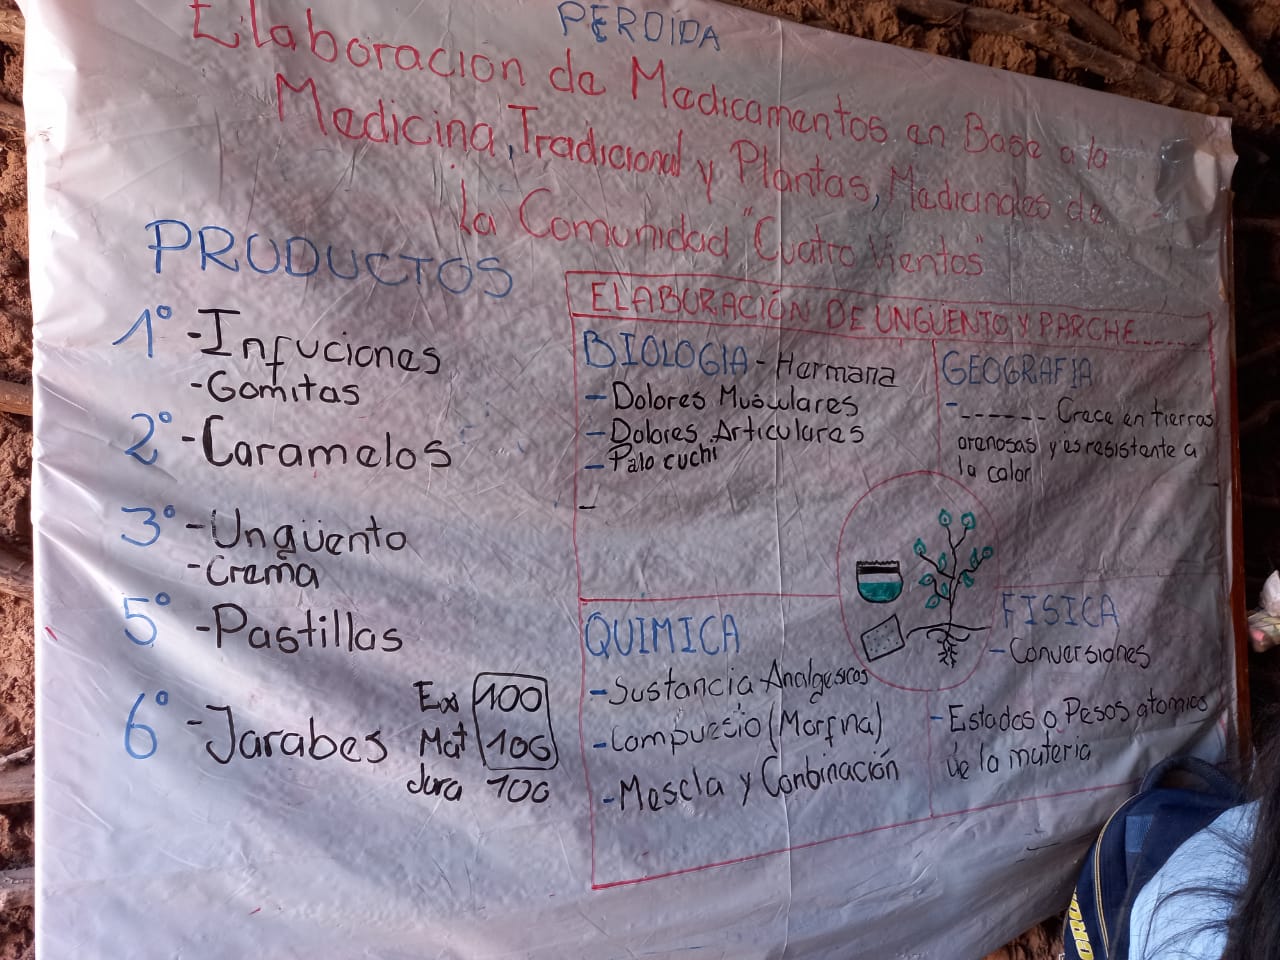 PERDIDA
Elaboración de Medicamentos en Base a la
Medicina, Tradicional y Plantas, Medicinales de
la Comunidad "Cuatro Vientos"
PRODUCTOS
1° - Infuciones
- Gomitas
2° - Caramelos
3° - Ungüento
- Crema
5° - Pastillas
6° - Jarabes
100
Mat 100
Jara 100
ELABORACIÓN DE UNGÜENTO Y PARCHE......
BIOLOGIA - Hermana
- Dolores Musculares
- Dolores Articulares
- Palo cuchi
-
GEOGRAFIA
- ------ Crece en tierras
arenosas y es resistente a
la calor
QUIMICA
- Sustancia Analgesicos
- Compuesto (Morfina)
- Mescla y Conbinación
FISICA
- Conversiones
- Estados o Pesos atomicos
de la materia